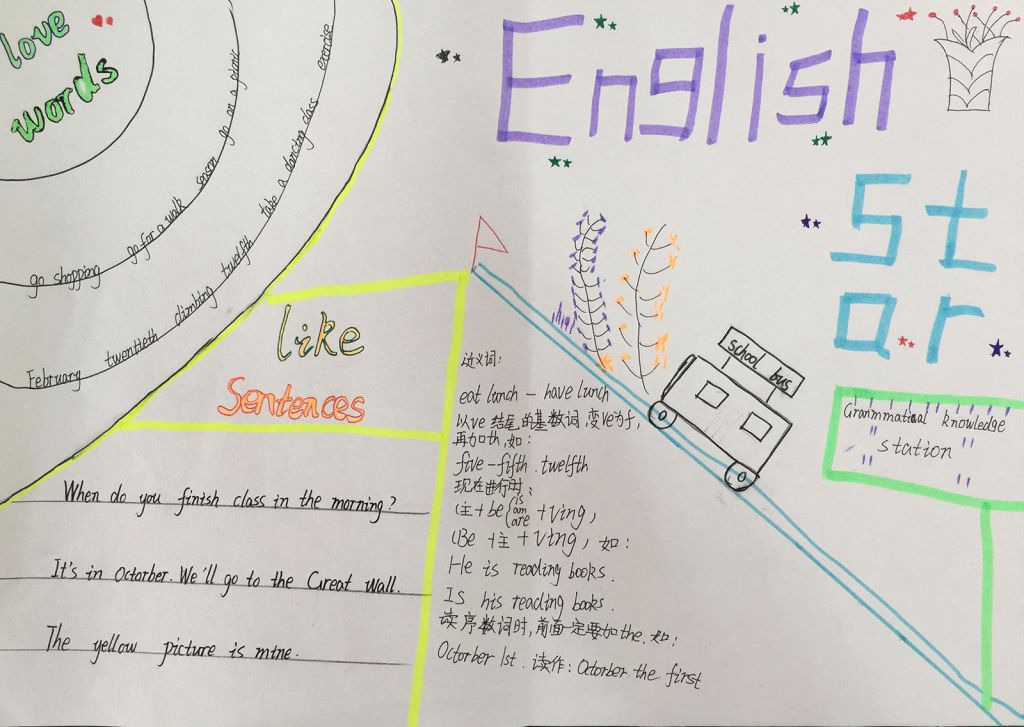 love
words
go shopping go for a walk season go on a picnic
February twentieth climbing twelfth take a dancing class exercise
English
St
ar
like
Sentences
When do you finish class in the morning?
It's in Octorber. We'll go to the Great Wall.
The yellow picture is mine.
近义词:
eat lunch - have lunch
以ve结尾的基数词,变ve为f,
再加th,如:
five-fifth . twelfth
现在进行时:
(主+be{is am are +Ving,
(Be +主+Ving, 如:
He is reading books.
Is his reading books.
读序数词时,前面一定要加the.如:
Octorber 1st. 读作:Octorber the first
school bus
Grammatical knowledge
station